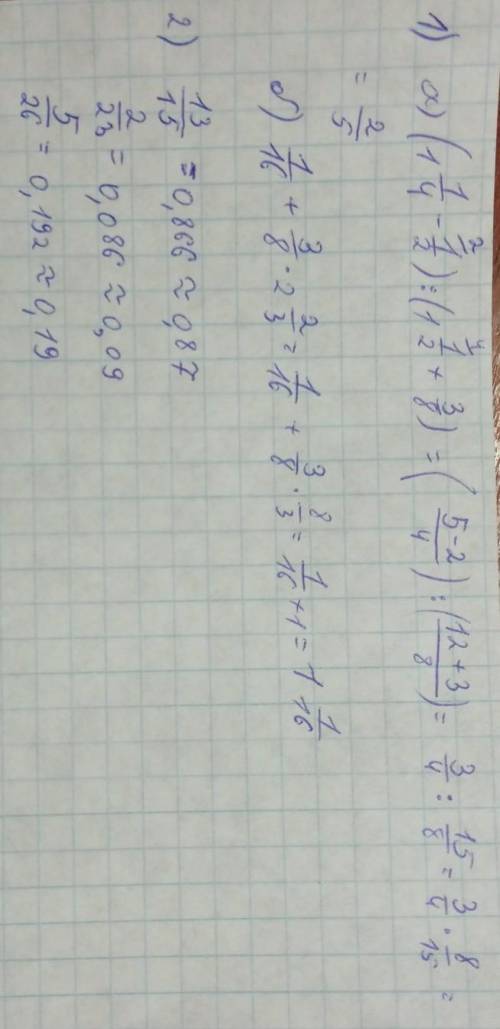 1) а) (1 1/4 - 1/2 ²) : (1 1/2 ⁴ + 3/8) = ((5-2)/4) : ((12+3)/8) = 3/4 : 15/8 = 3/4 · 8/15 =
= 2/5
б) 1/16 + 3/8 · 2 2/3 = 1/16 + 3/8 · 8/3 = 1/16 + 1 = 1 1/16
2) 13/15 = 0,866 ≈ 0,87
2/23 = 0,086 ≈ 0,09
5/26 = 0,192 ≈ 0,19